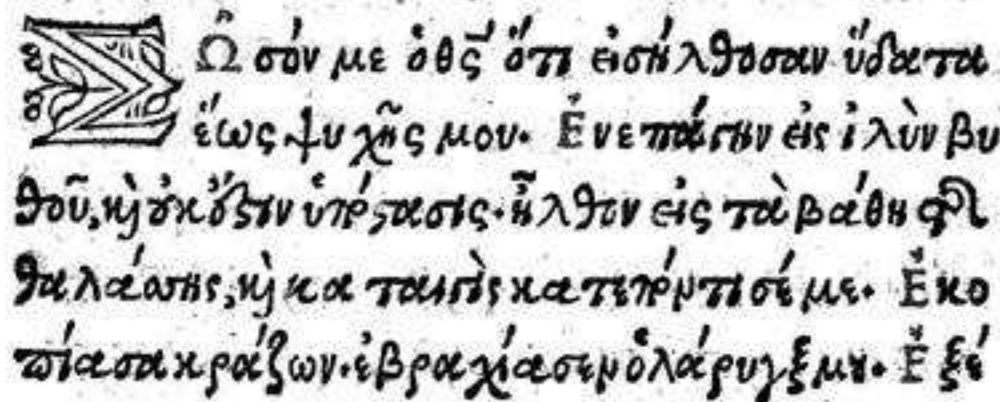 ΣΩ͂σόν με ὁ θς̄ ὅτι εἰσήλθοσαν ὕδατα
ἕως ψυχῆς μου. Ἐνεπάγην εἰς ἰλὺν βυ
θοῦ, καὶ οὐκ ἔστιν ὑπόστασις. ἦλθον εἰς τὰ βάθη τῆς
θαλάσσης, καὶ καταιγὶς κατεπόντισέ με. Ἐκο
πίασα κράζων. ἐβραχίασεν ὁ λάρυγξ μου. Ἐξέ